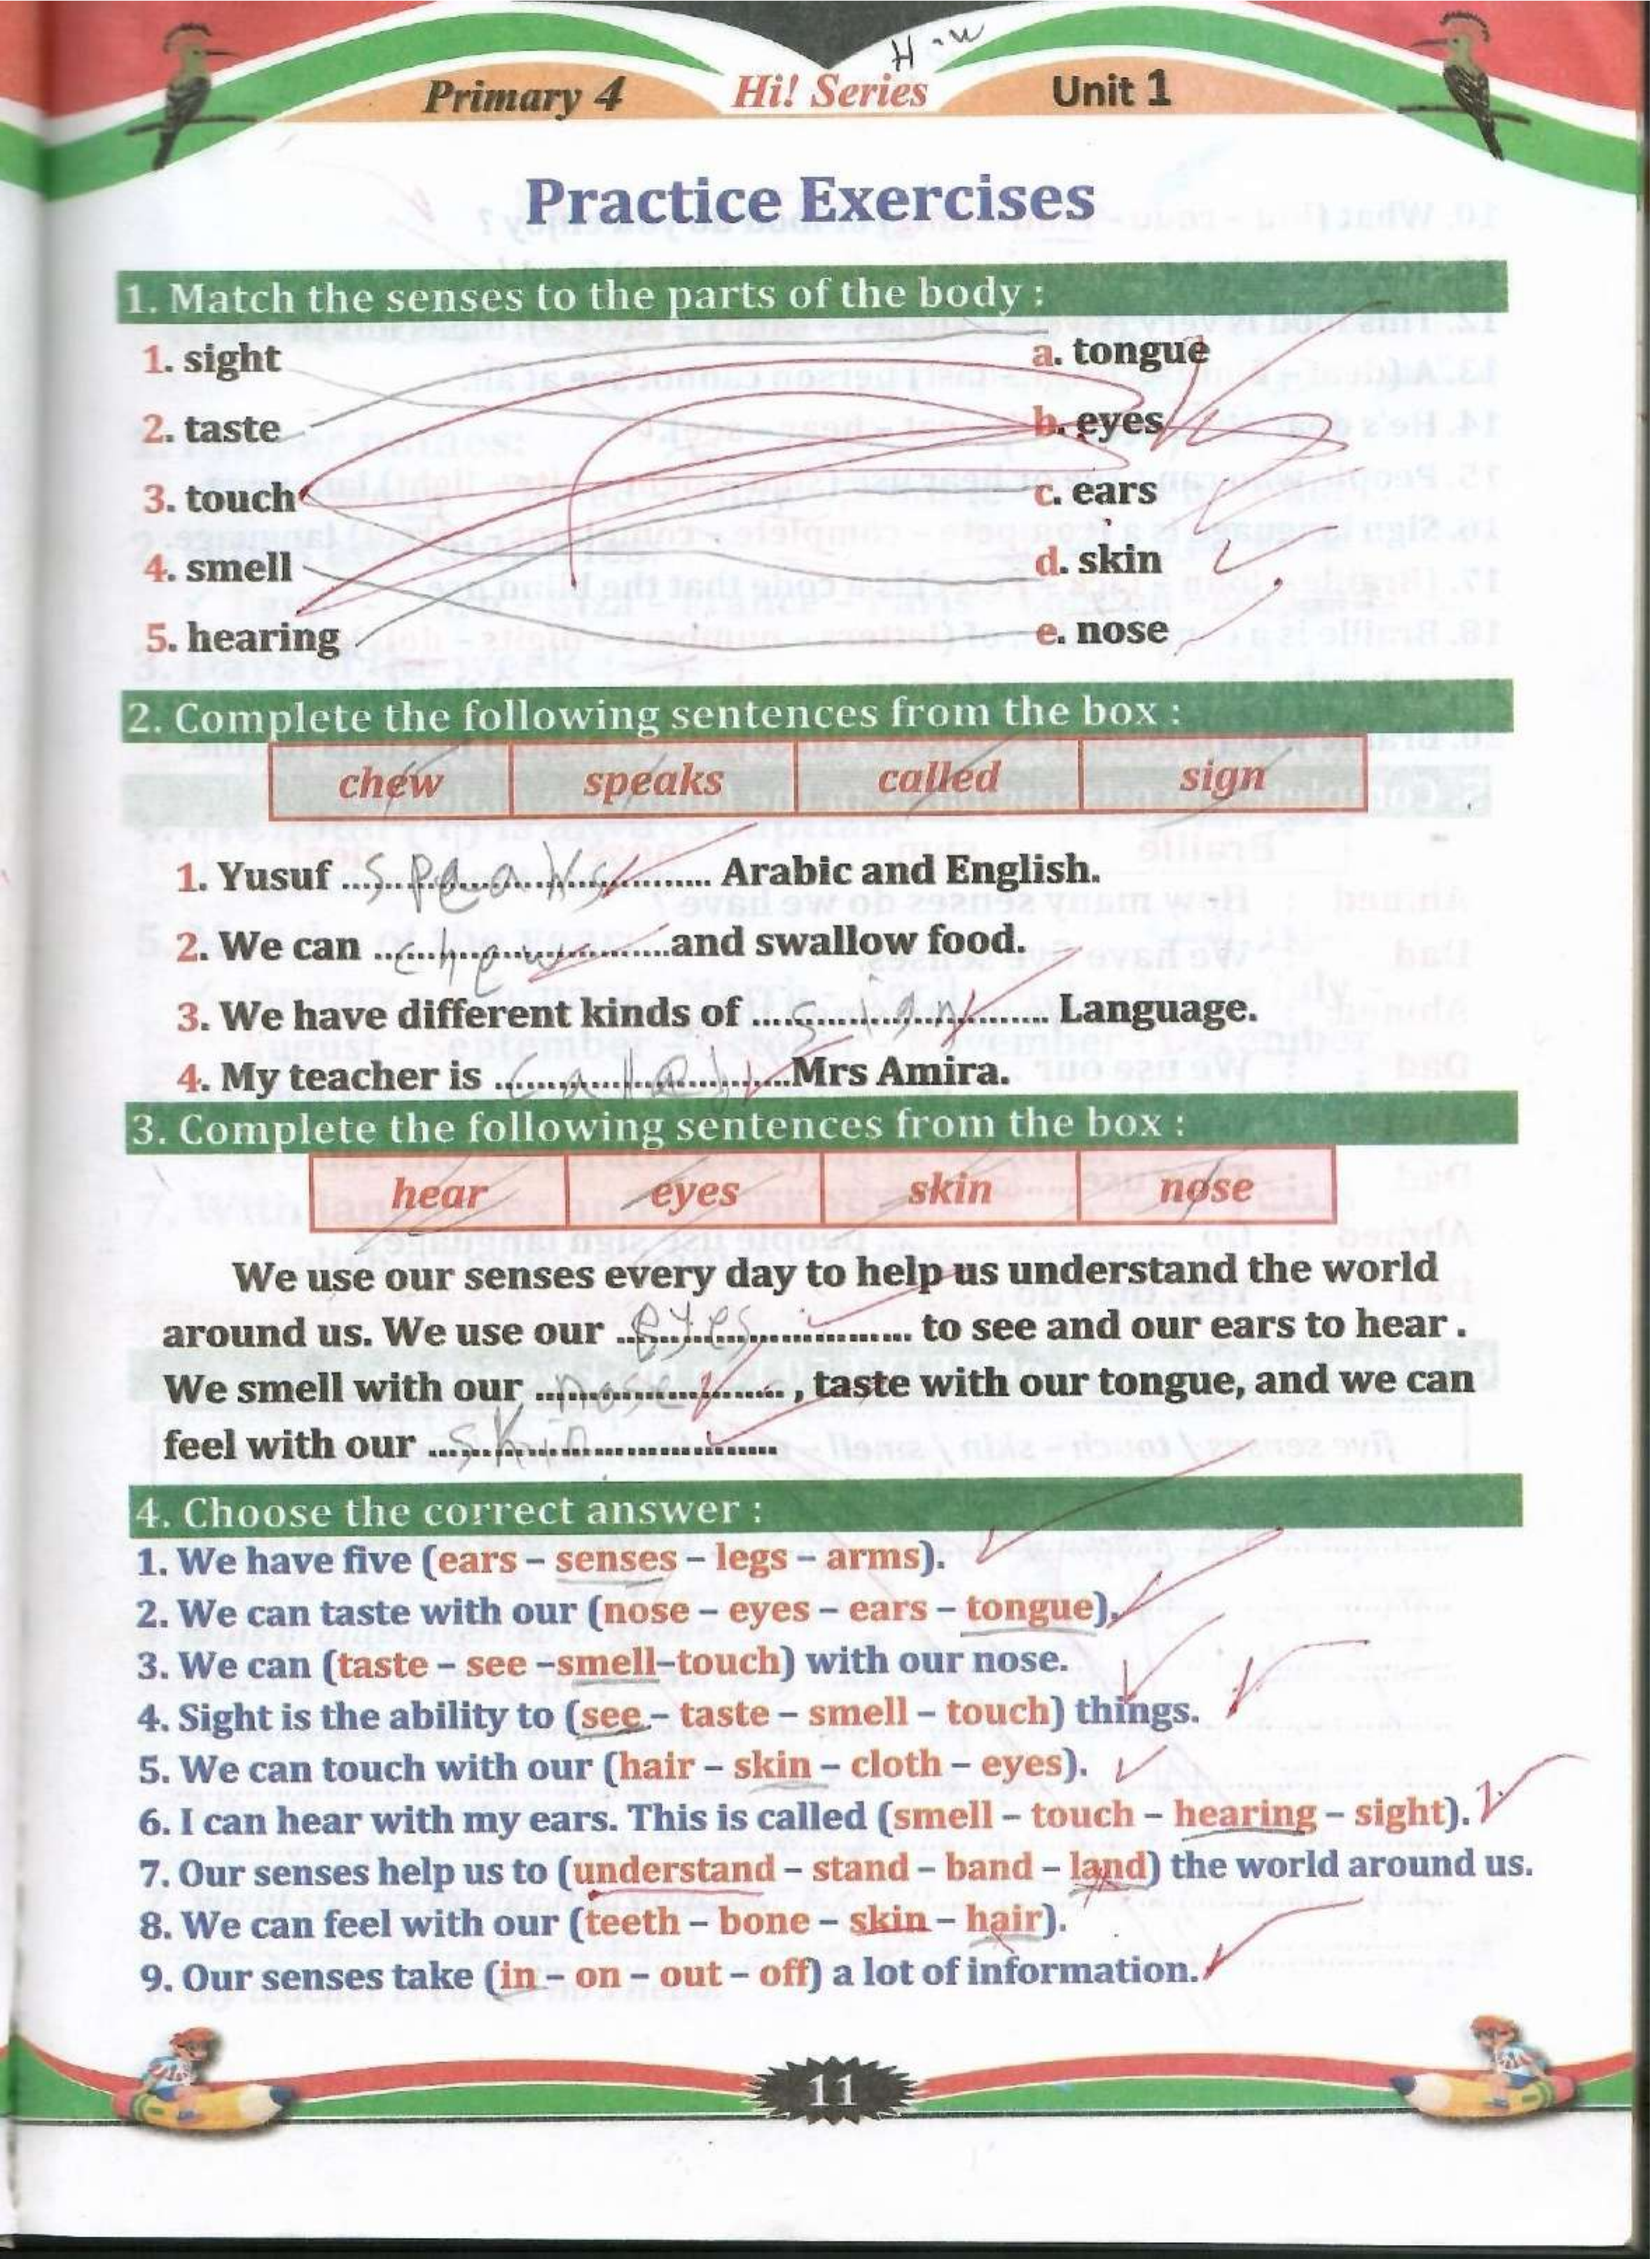 H.w
Primary 4 Hi! Series Unit 1
Practice Exercises
1. Match the senses to the parts of the body :
1. sight a. tongue
2. taste b. eyes
3. touch c. ears
4. smell d. skin
5. hearing e. nose
2. Complete the following sentences from the box :
chew speaks called sign
1. Yusuf ...speaks... Arabic and English.
2. We can ...chew...and swallow food.
3. We have different kinds of ...sign... Language.
4. My teacher is ......Mrs Amira.
3. Complete the following sentences from the box :
hear eyes skin nose
We use our senses every day to help us understand the world
around us. We use our ...eyes... to see and our ears to hear .
We smell with our ...nose... , taste with our tongue, and we can
feel with our ...skin...
4. Choose the correct answer :
1. We have five (ears – senses – legs – arms).
2. We can taste with our (nose – eyes – ears – tongue).
3. We can (taste – see –smell–touch) with our nose.
4. Sight is the ability to (see – taste – smell – touch) things.
5. We can touch with our (hair – skin – cloth – eyes).
6. I can hear with my ears. This is called (smell – touch – hearing – sight).
7. Our senses help us to (understand – stand – band – land) the world around us.
8. We can feel with our (teeth – bone – skin – hair).
9. Our senses take (in – on – out – off) a lot of information.
11